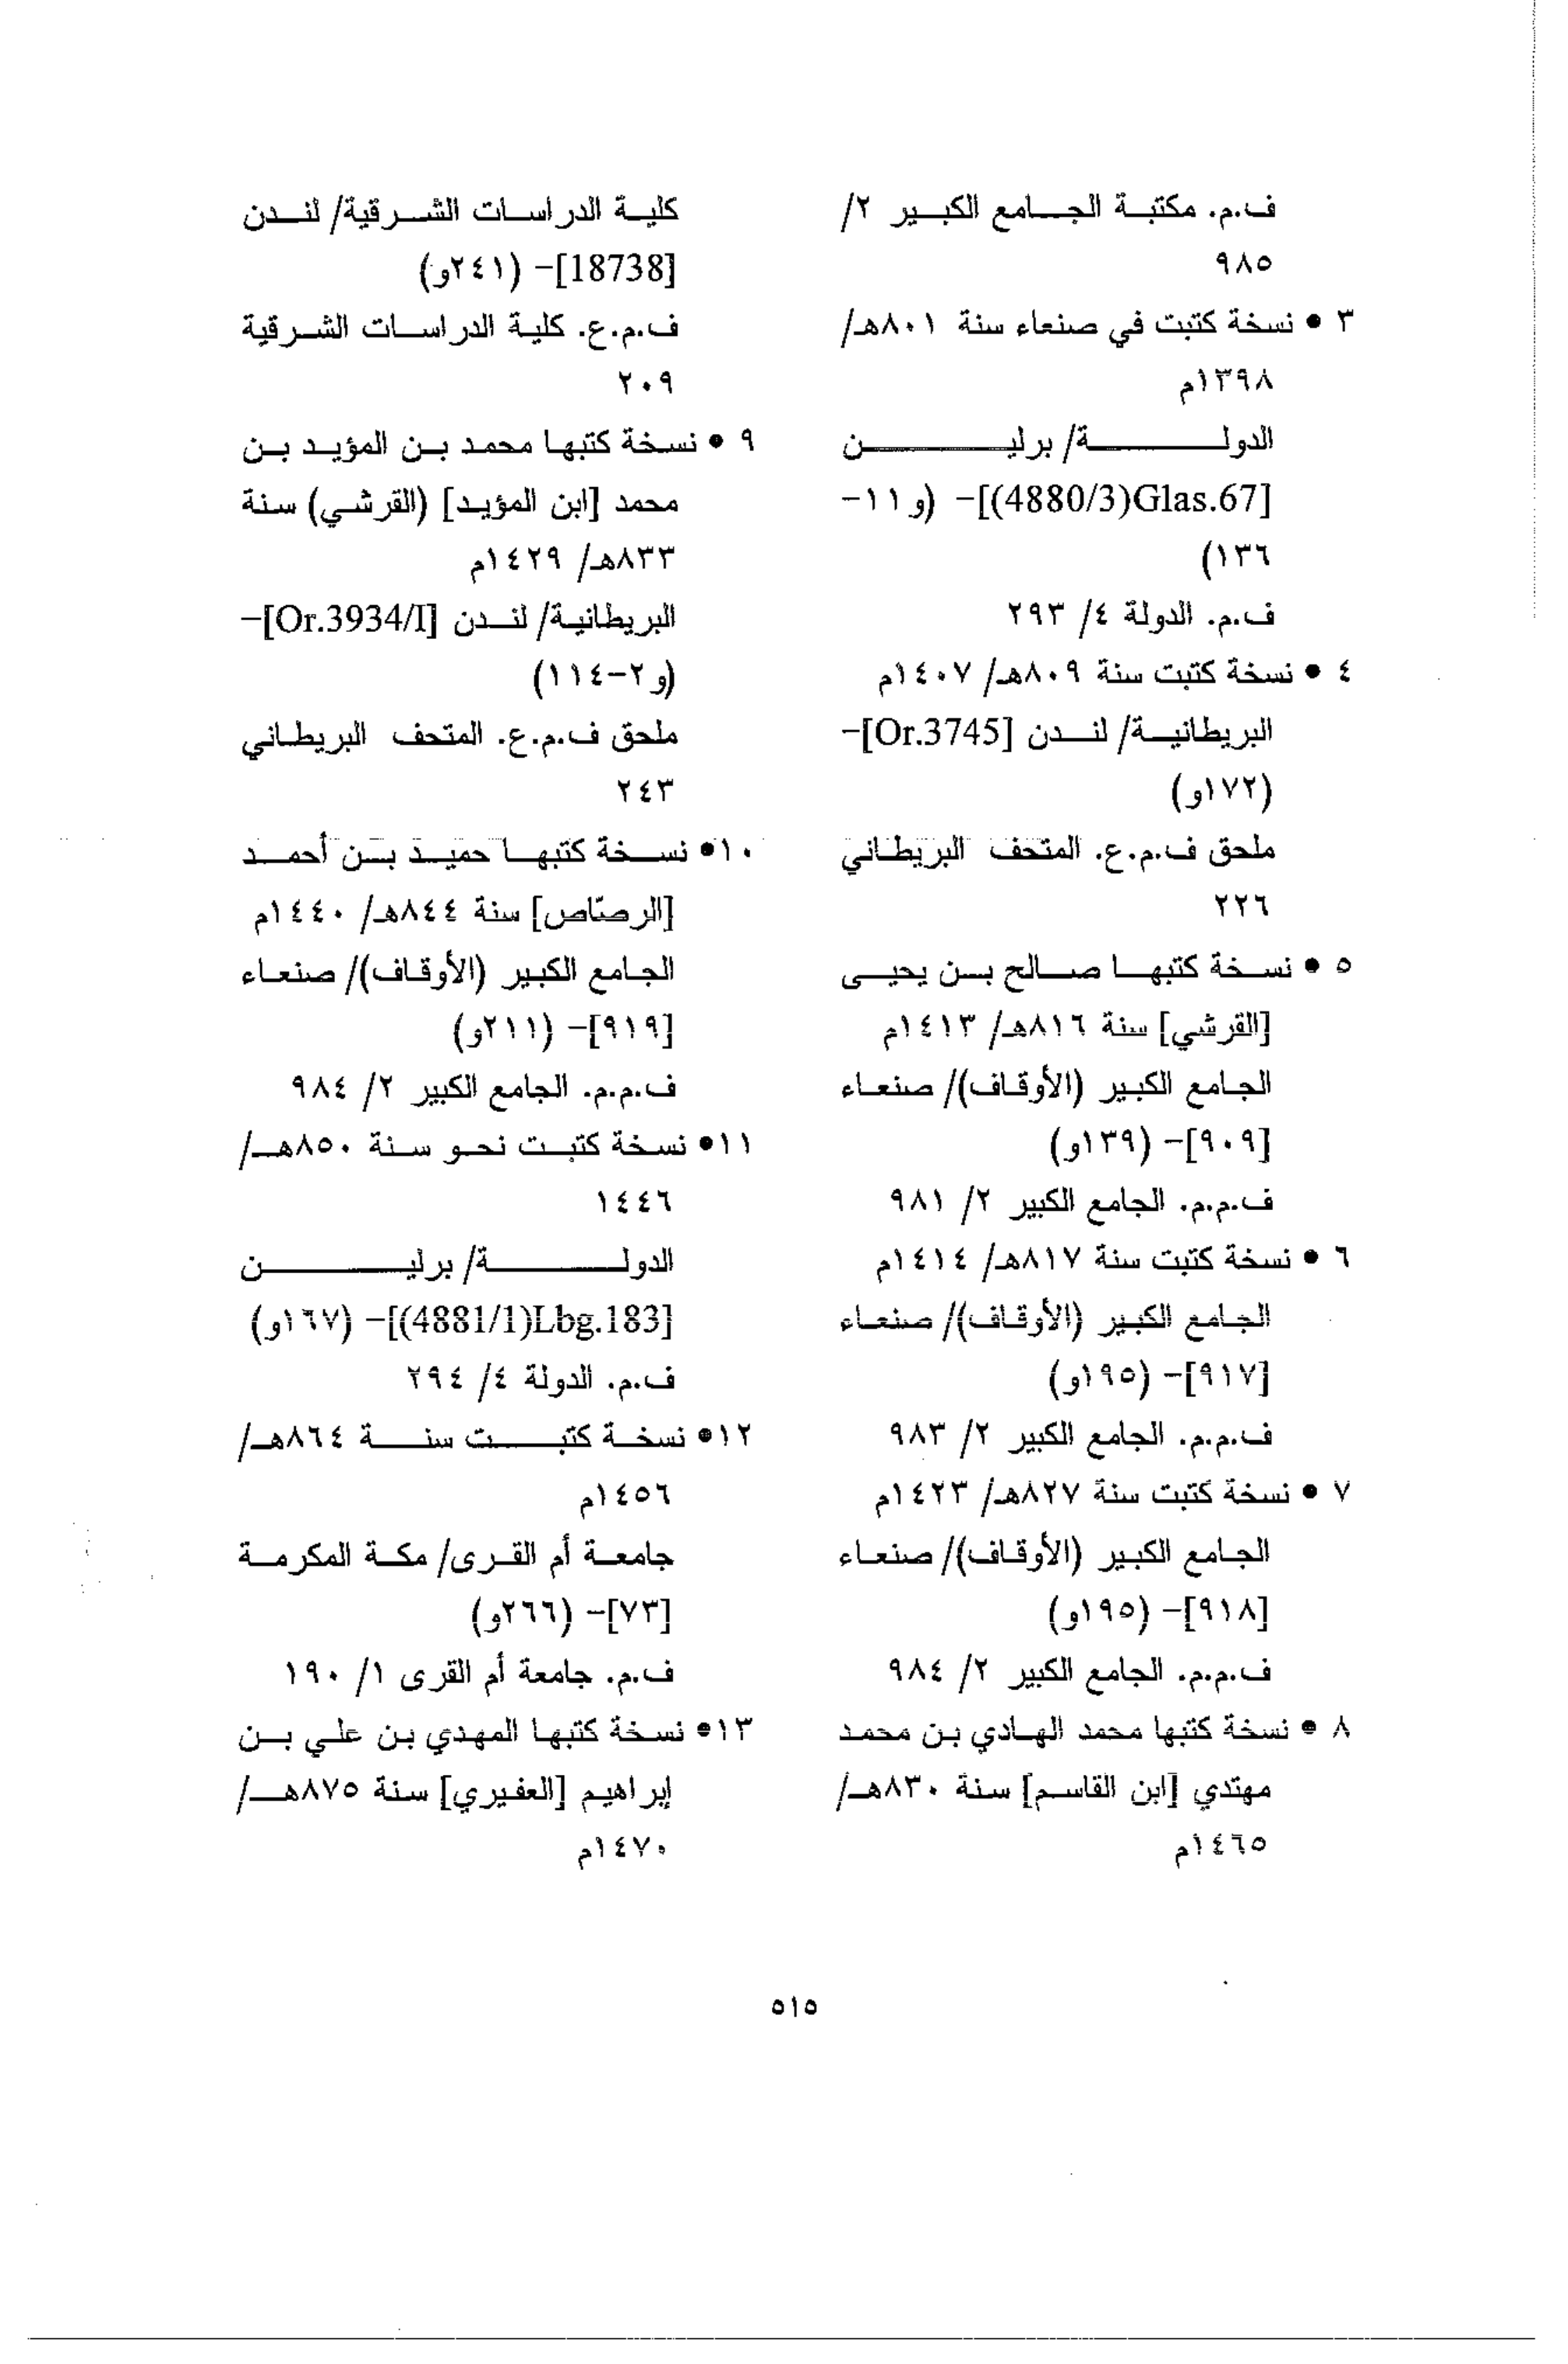 ف.م. مكتبة الجامع الكبير ٢/
٩٨٥
٣ • نسخة كتبت في صنعاء سنة ٨٠١هـ/
١٣٩٨م
الدولة/ برلين
[4880/3)Glas.67)]- (و١١-
١٣٦)
ف.م. الدولة ٤/ ٢٩٣
٤ • نسخة كتبت سنة ٨٠٩هـ/ ١٤٠٧م
البريطانية/ لندن [Or.3745]-
(١٧٢و)
ملحق ف.م.ع. المتحف البريطاني
٢٢٦
٥ • نسخة كتبها صالح بن يحيى
[القرشي] سنة ٨١٦هـ/ ١٤١٣م
الجامع الكبير (الأوقاف)/ صنعاء
[٩٠٩]- (١٣٩و)
ف.م.م. الجامع الكبير ٢/ ٩٨١
٦ • نسخة كتبت سنة ٨١٧هـ/ ١٤١٤م
الجامع الكبير (الأوقاف)/ صنعاء
[٩١٧]- (١٩٥و)
ف.م.م. الجامع الكبير ٢/ ٩٨٣
٧ • نسخة كتبت سنة ٨٢٧هـ/ ١٤٢٣م
الجامع الكبير (الأوقاف)/ صنعاء
[٩١٨]- (١٩٥و)
ف.م.م. الجامع الكبير ٢/ ٩٨٤
٨ • نسخة كتبها محمد الهادي بن محمد
مهتدي [ابن القاسم] سنة ٨٣٠هـ/
١٤٦٥م
كلية الدراسات الشرقية/ لندن
[18738]- (٢٤١و)
ف.م.ع. كلية الدراسات الشرقية
٢٠٩
٩ • نسخة كتبها محمد بن المؤيد بن
محمد [ابن المؤيد] (القرشي) سنة
٨٣٣هـ/ ١٤٢٩م
البريطانية/ لندن [Or.3934/I]-
(و٢-١١٤)
ملحق ف.م.ع. المتحف البريطاني
٢٤٣
١٠• نسخة كتبها حميد بن أحمد
[الرصّاص] سنة ٨٤٤هـ/ ١٤٤٠م
الجامع الكبير (الأوقاف)/ صنعاء
[٩١٩]- (٢١١و)
ف.م.م. الجامع الكبير ٢/ ٩٨٤
١١• نسخة كتبت نحو سنة ٨٥٠هـ/
١٤٤٦
الدولة/ برلين
[4881/1)Lbg.183)]- (١٦٧و)
ف.م. الدولة ٤/ ٢٩٤
١٢• نسخة كتبت سنة ٨٦٤هـ/
١٤٥٦م
جامعة أم القرى/ مكة المكرمة
[٧٣]- (٢٦٦و)
ف.م. جامعة أم القرى ١/ ١٩٠
١٣• نسخة كتبها المهدي بن علي بن
إبراهيم [العفيري] سنة ٨٧٥هـ/
١٤٧٠م
٥١٥